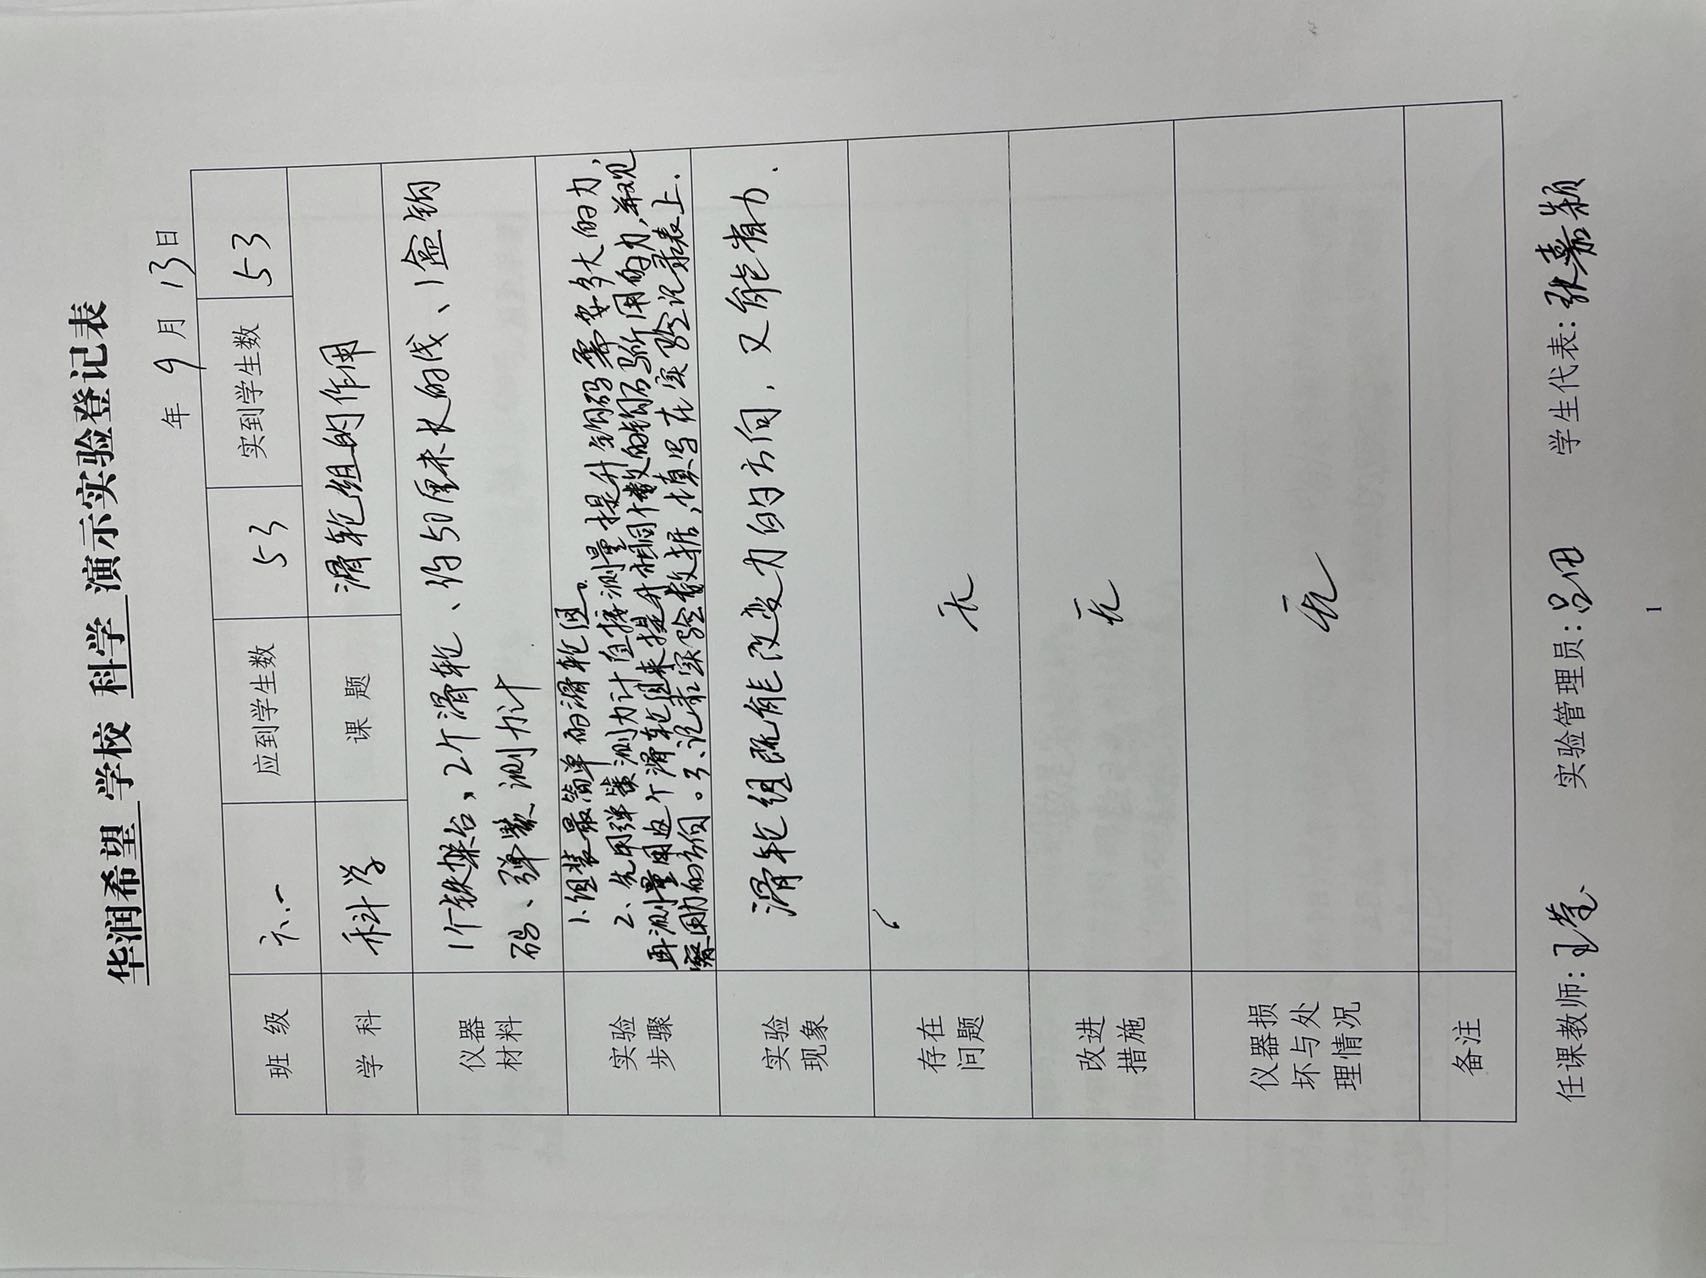 华润希望 学校 科学 演示实验登记表
年 9 月 13 日
班 级 六.一 应到学生数 53 实到学生数 53
学 科 科学 课 题 滑轮组的作用
仪器
材料
1个铁架台、2个滑轮、约50厘米长的线、1盒钩
码、弹簧测力计
实验
步骤
1.组装最简单的滑轮组。
2、先用弹簧测力计直接测量提升钩码需要多大的力,
再测量用这个滑轮组来提升相同个数的钩码所用的力,并观
察用力的方向。3、记录实验数据,填写在实验记录表上.
实验
现象
滑轮组既能改变力的方向,又能省力.
存在
问题
无
改进
措施
无
仪器损
坏与处
理情况
无
备注
任课教师: 王莹 实验管理员: 吕田 学生代表: 张嘉颖
1